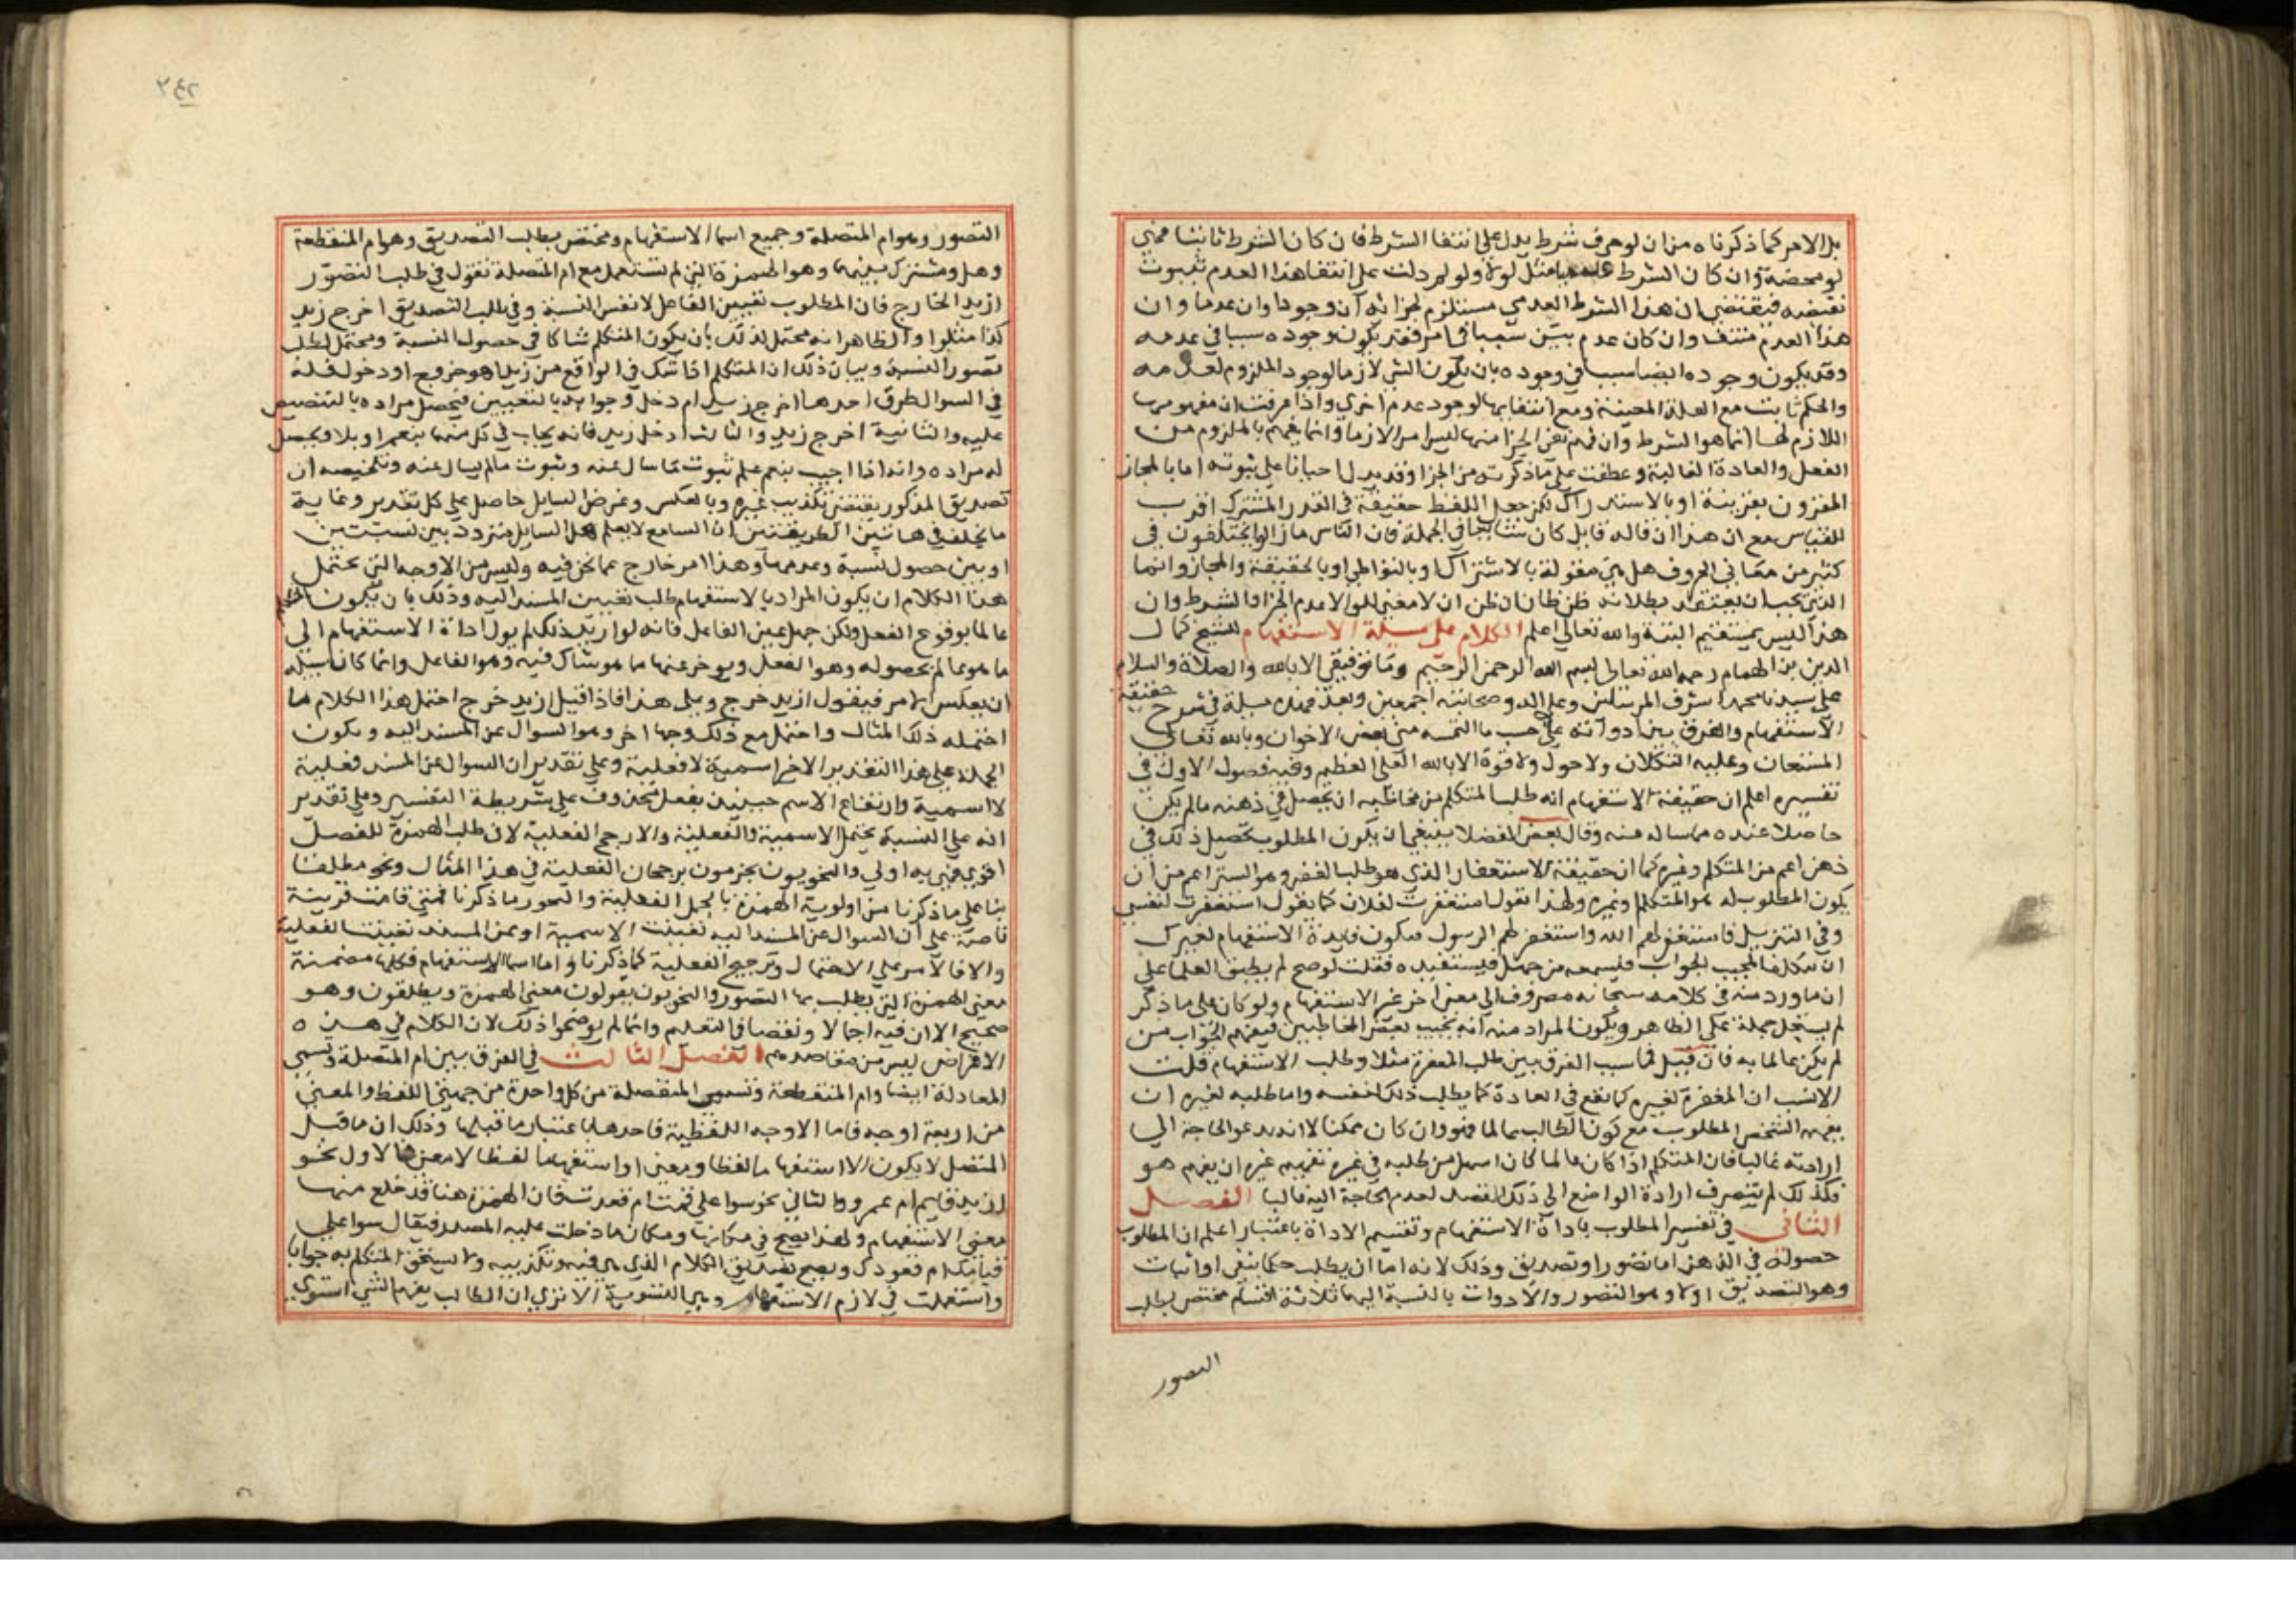 بل الامر كما ذكرناه من ان لو حرف شرط يدل على انتفا الشرط فان كان الشرط ثابتا فهي
لو محضة وان كان الشرط عدميا مثل لولا ولو لم دلت على انتفا هذا العدم بثبوت
نقيضه فيقتضي ان هذا الشرط العدمي مستلزم لجزائه ان وجودا وان عدما وان
هذا العدم منتف وان كان عدم بين سببا في امر فقد يكون وجوده سببا في عدمه
وقد يكون وجوده ايضا سببا في وجوده بان يكون الشي لازما لوجود الملزوم لعدمه
والحكم ثابت مع العلة المعينة ومع انتفايها لوجود عدم اخرى واذا عرفت ان مفهومها
اللازم لها انما هو الشرط وان فهم نفي الجزا منها ليس امرا لازما وانما يفهم باللزوم من
الفعل والعادة الغالبة وعطفت على ما ذكرت من الجزا وقد يدل احيانا على ثبوته اما بالمجاز
المقرون بقرينة او بالاستدراك لكن جعل اللفظ حقيقة في القدر المشترك اقرب
للقياس مع ان هذا ان قاله قايل كان سايغا في الجملة فان الناس ما زالوا يختلفون في
كثير من معاني الحروف هل هي مقولة بالاشتراك او بالتواطي او بالحقيقة والمجاز وانما
الذي يجب ان يعتقد بطلانه ظن ظان ان ظن ان لا معنى للو الا عدم الجزا والشرط وان
هذا ليس بمستقيم البتة والله تعالى اعلم الكلام على مسيلة الاستفهام للشيخ كمال
الدين بن الهمام رحمه الله تعالى بسم الله الرحمن الرحيم وما توفيقي الا بالله والصلاة والسلام
على سيدنا محمد اشرف المرسلين وعلى اله وصحابته اجمعين وبعد فهذه مسيلة في شرح حقيقة
الاستفهام والفرق بين ادواته على حسب ما التمسه مني بعض الاخوان وبالله تعالى
المستعان وعليه التكلان ولا حول ولا قوة الا بالله العلي العظيم وفيه فصول الاول في
تفسيره اعلم ان حقيقة الاستفهام انه طلب المتكلم من مخاطبه ان يحصل في ذهنه ما لم يكن
حاصلا عنده مما ساله عنه وقال بعض الفضلا ينبغي ان يكون المطلوب تحصيل ذلك في
ذهن اعم من المتكلم وغيره كما ان حقيقة الاستغفار الذي هو طلب الغفر وهو الستر اعم من ان
يكون المطلوب له هو المتكلم وغيره ولهذا تقول استغفرت لفلان كما تقول استغفرت لنفسي
وفي التنزيل فاستغفروا الله واستغفر لهم الرسول فيكون فايدة الاستفهام لغيرك
ان يتكلف المجيب الجواب فيسمعه من جهل فيستفيده فقلت لو صح لم يطبق العلما على
ان ما ورد منه في كلامه سبحانه مصروف الى معنى اخر غير الاستفهام ولو كان على ما ذكر
لم يستحل حمله على الظاهر ويكون المراد منه انه يجيب بعض المخاطبين فيفهم الجواب من
لم يكن عالما به فان قيل فما سبب الفرق بين طلب المغفرة مثلا وطلب الاستفهام قلت
الانسب ان المغفرة لغيره كما تقع في العادة كما يطلب ذلك لنفسه واما طلبه لغيره ان
يفهم الشخص المطلوب مع كون الطالب عالما فهو وان كان ممكنا لا انه يدعو الحاجة الى
ارادته غالبا فان المتكلم اذا كان عالما كان اسهل من طلبه في غيره تفهيم غيره ان يفهم هو
فكذلك لم ينصرف ارادة الواضع الى ذلك القصد لعدم الحاجة اليه غالبا الفصل
الثاني في تفسير المطلوب باداة الاستفهام وتقسيم الاداة باعتبار اعلم ان المطلوب
حصوله في الذهن اما تصور او تصديق وذلك لانه اما ان يطلب حكما بنفي او اثبات
وهو التصديق اولا وهو التصور والادوات بالنسبة اليهما ثلاثة اقسام مختص بطلب
التصور
٢٤٢
التصور وهو ام المتصلة وجميع اسما الاستفهام ومختص بطلب التصديق وهو ام المنقطعة
وهل ومشترك بينهما وهو الهمزة التي لم تستعمل مع ام المتصلة تقول في طلب التصور
ازيد الخارج فان المطلوب تعيين الفاعل لا نفس النسبة وفي طلب التصديق اخرج زيد
كذا مثلوا والظاهر انه محتمل لذلك بان يكون المتكلم شاكا في حصول النسبة ومحتمل لطلب
تصور النسبة وبيان ذلك ان المتكلم اذا شك في الواقع من زيد اهو خروج او دخول فله
في السوال طرق احدها اخرج زيد ام دخل وجوابه بالتعيين فيحصل مراده بالتنصيص
عليه والثانية اخرج زيد والثالث ادخل زيد فانه يجاب في كل منهما بنعم او بلا ويحصل
له مراده وانه اذا اجيب بنعم علم ثبوت ما سال عنه وثبوت ما لم يسال عنه وتلخيصه ان
تصديق المذكور يقتضي تكذيب غيره وبالعكس وغرض السايل حاصل على كل تقدير وغاية
ما تخلف في هاتين الطريقتين ان السامع لا يعلم هل السايل متردد بين نسبتين
او بين حصول نسبة وعدمها وهذا امر خارج عما نحن فيه وليس من الاوجه التي يحتمل
هذا الكلام ان يكون المراد بالاستفهام طلب تعيين المسند اليه وذلك بان يكون
عالما بوقوع الفعل ولكن جهل عين الفاعل فانه لو اريد ذلك لم يول اداة الاستفهام الى
ما هو عالم بحصوله وهو الفعل ويوخر عنها ما هو شاك فيه وهو الفاعل وانما كان سبيله
ان يعكس الامر فيقول ازيد خرج وعلى هذا فاذا قيل ازيد خرج احتمل هذا الكلام ما
احتمله ذلك المثال واحتمل مع ذلك وجها اخر وهو السوال عن المسند اليه ويكون
الجملة على هذا التقدير الاخير اسمية لا فعلية وعلى تقدير ان السوال عن المسند فعلية
لا اسمية وارتفاع الاسم حينيذ بفعل محذوف على شريطة التفسير وعلى تقدير
انه على النسبة يحتمل الاسمية والفعلية والارجح الفعلية لان طلب الهمزة للفعل
اقوى فهي به اولى والنحويون يجزمون برجحان الفعلية في هذا المثال ونحوه مطلقا
بنا على ما ذكرنا من اولوية الهمزة بالجمل الفعلية والتحرير ما ذكرنا فمتى قامت قرينة
ناصة على ان السوال عن المسند اليه تعينت الاسمية او عن المسند تعينت الفعلية
والا فالامر على الاحتمال وترجيح الفعلية كما ذكرنا واما اسما الاستفهام فكلها مضمنة
معنى الهمزة التي يطلب بها التصور والنحويون يقولون معنى الهمزة ويطلقون وهو
صحيح الا ان فيه اجمالا ونقصا في التعليم وانما لم يوضحوا ذلك لان الكلام في هذه
الاغراض ليس من مقاصدهم الفصل الثالث في الفرق بين ام المتصلة وتسمى
المعادلة ايضا وام المنقطعة وتسمى المنفصلة من كل واحدة من جهتي اللفظ والمعنى
من اربعة اوجه فاما الاوجه اللفظية فاحدها باعتبار ما قبلها وذلك ان ما قبل
المتصل لا يكون الا استفهاما لفظا ومعنى او استفهاما لفظا لا معنى فالاول نحو
ازيد قايم ام عمرو والثاني نحو سوا على قمت ام قعدت فان الهمزة هنا قد خلع منها
معنى الاستفهام ولهذا يصح في مكانها ومكان ما دخلت عليه المصدر فيقال سوا على
قيامك ام قعودك ويصح تصديق الكلام الذي هي فيه وتكذيبه ولا يستحق المتكلم به جوابا
واستعملت في لازم الاستفهام وهي للتسوية الا ترى ان الطالب يفهم الشي استوى